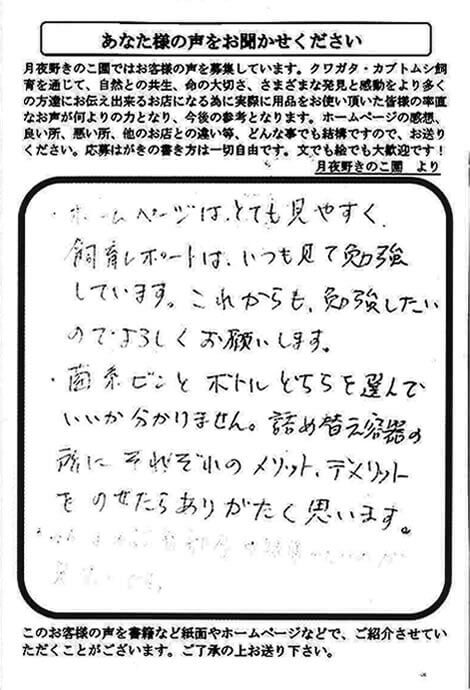 あなた様の声をお聞かせください
月夜野きのこ園ではお客様の声を募集しています。クワガタ・カブトムシ飼
育を通じて、自然との共生、命の大切さ、さまざまな発見と感動をより多く
の方達にお伝え出来るお店になる為に実際に用品をお使い頂いた皆様の率直
なお声が何よりの力となり、今後の参考となります。ホームページの感想、
良い所、悪い所、他のお店との違い等、どんな事でも結構ですので、お送り
ください。応募はがきの書き方は一切自由です。文でも絵でも大歓迎です！
月夜野きのこ園 より
・ホームページは、とても見やすく、
飼育レポートは、いつも見て勉強
しています。これからも、勉強したい
のでよろしくお願いします。
・菌糸ビンとボトルどちらを選んで
いいか分かりません。詰め替え容器の
所にそれぞれのメリット、デメリット
をのせたらありがたく思います。
このお客様の声を書籍など紙面やホームページなどで、ご紹介させてい
ただくことがございます。ご了承の上お送り下さい。